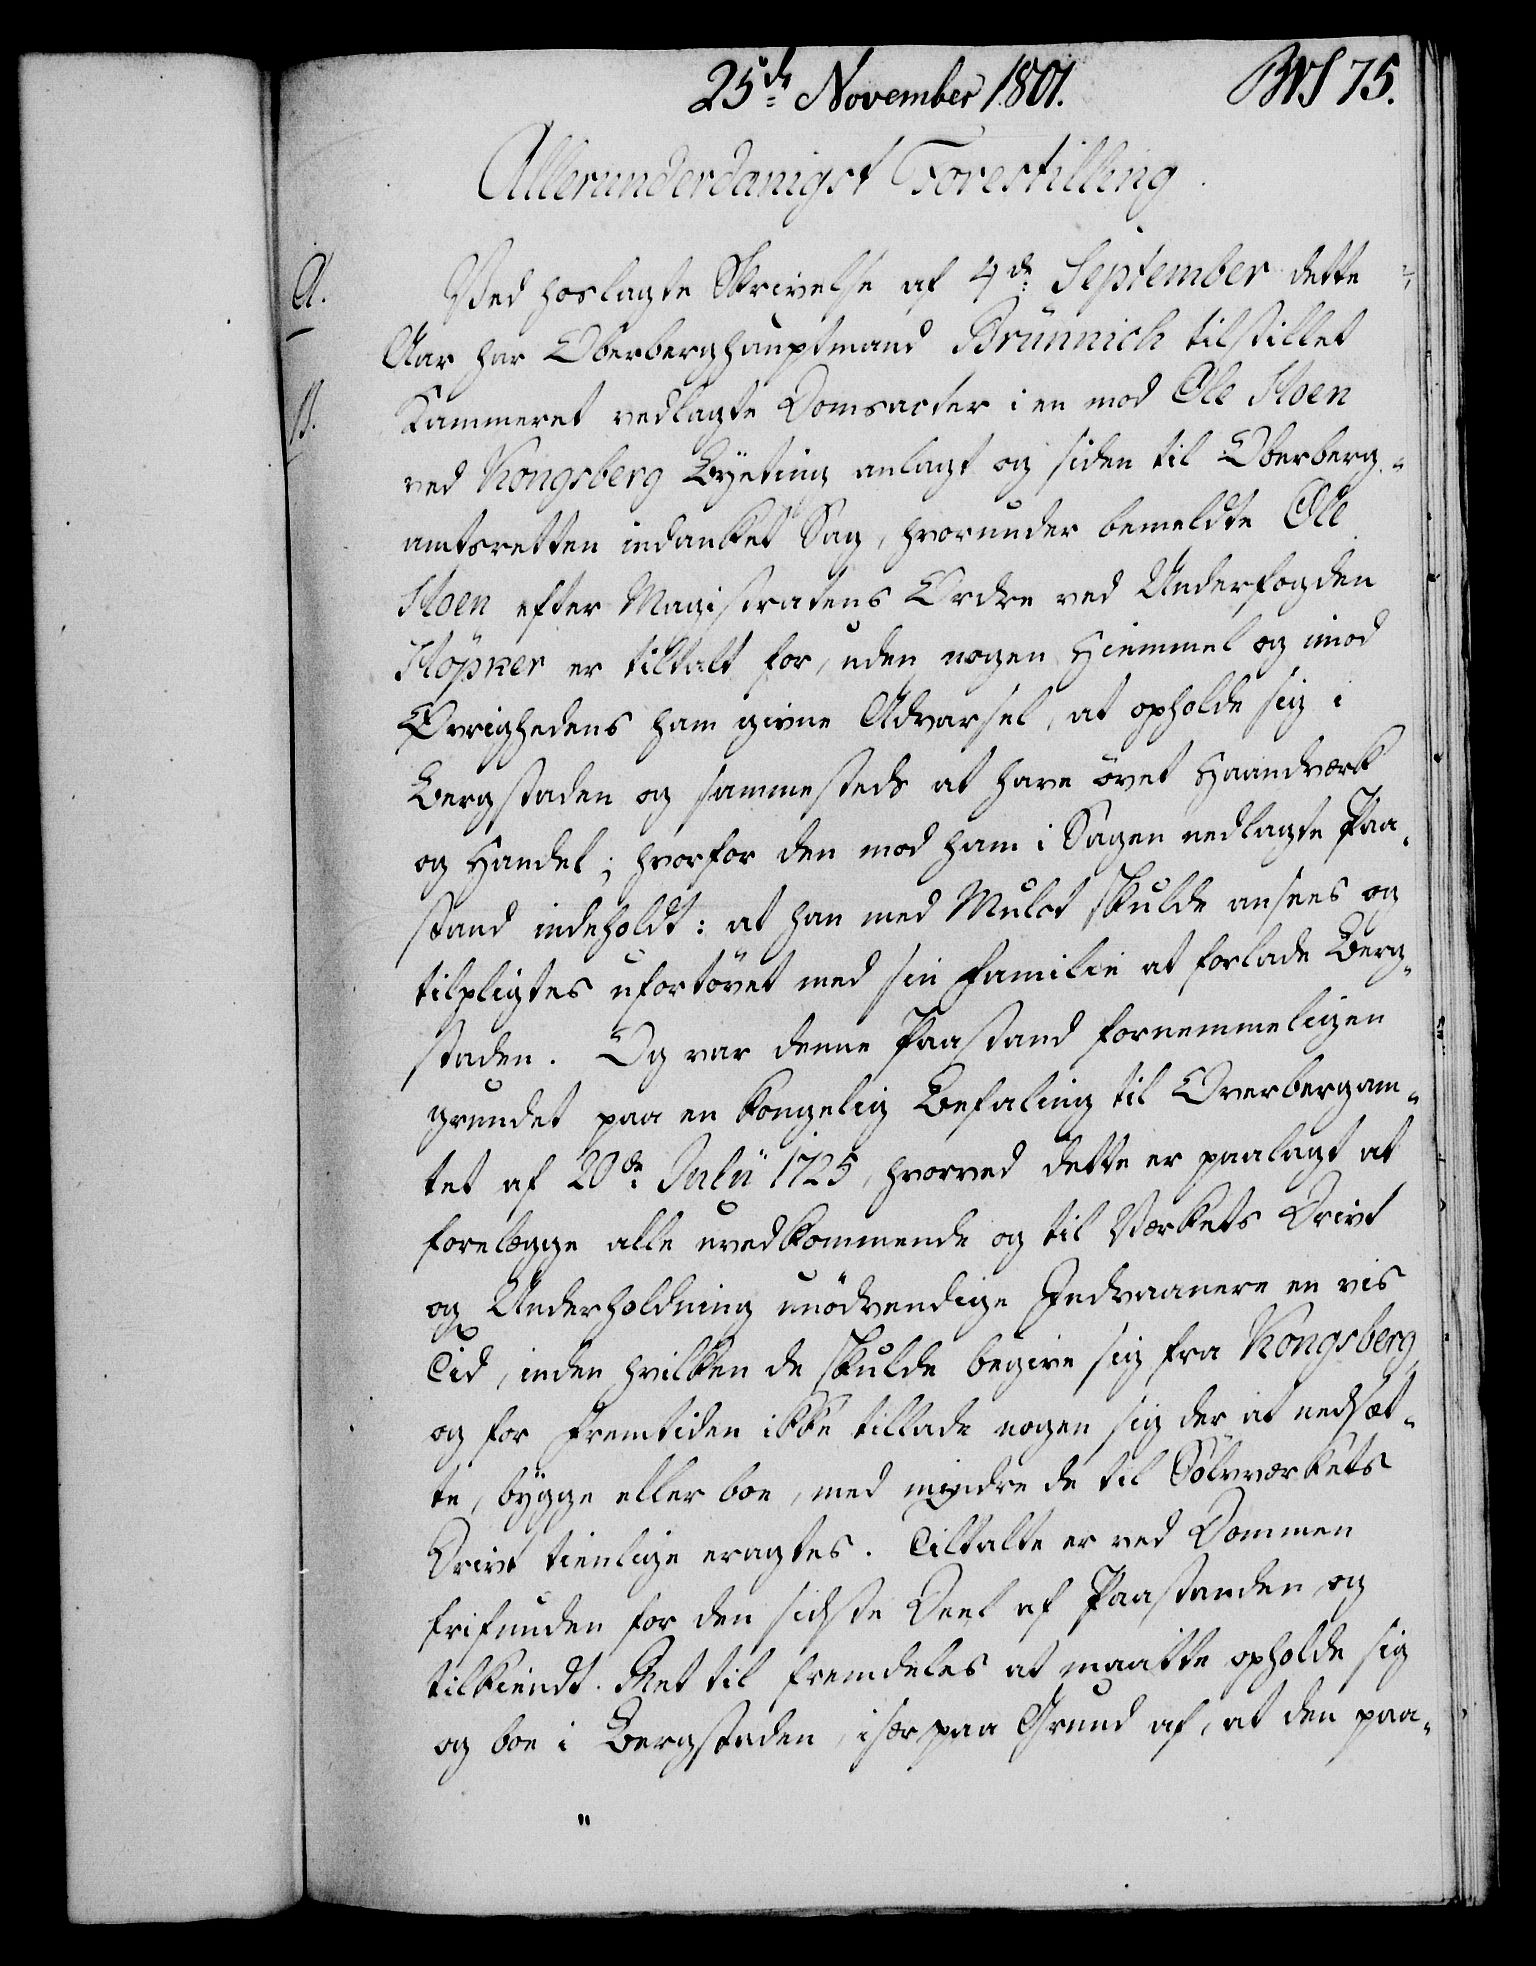 25de November 1801. BVS 75.
Allerunderdanigst Forestilling.
A. Ved hoslagte Skrivelse af 4de September dette
Aar har Oberberghauptmand Brünnich tilstillet
B. Kammeret vedlagte Domsacter i en mod Ole Hoen
ved Kongsberg Byeting anlagt og siden til Oberberg-
amtsretten indanket Sag, hvorunder bemeldte Ole
Hoen efter Magistratens Ordre ved Underfogden
Höpner er tiltalt for, uden nogen Hiemmel og imod
Øvrighedens ham givne Advarsel, at opholde sig i
Bergstaden og sammesteds at have øvet Haandværk
og Handel; hvorfor den mod ham i Sagen nedlagte Paa-
stand indeholdt: at han med Mulct skulde ansees og
tilpligtes ufortøvet med sin Familie at forlade Berg-
staden. Og var denne Paastand fornemmeligen
grundet paa en kongelig Befaling til Overbergam-
tet af 20de Julii 1725, hvorved dette er paalagt at
forelægge alle uvedkommende og til Værkets Drivt
og Underholdning unødvendige Indvaanere en vis
Tid, inden hvilken de skulde begive sig fra Kongsberg
og for Fremtiden ikke tillade nogen sig der at nedsæt-
te, bygge eller boe, med mindre de til Sølvværkets
Drivt tienlige eragtes. Tiltalte er ved Dommen
frifunden for den sidste Deel af Paastanden og
tilkiendt Ret til fremdeles at maatte opholde sig
og boe i Bergstaden, især paa Grund af, at den paa-